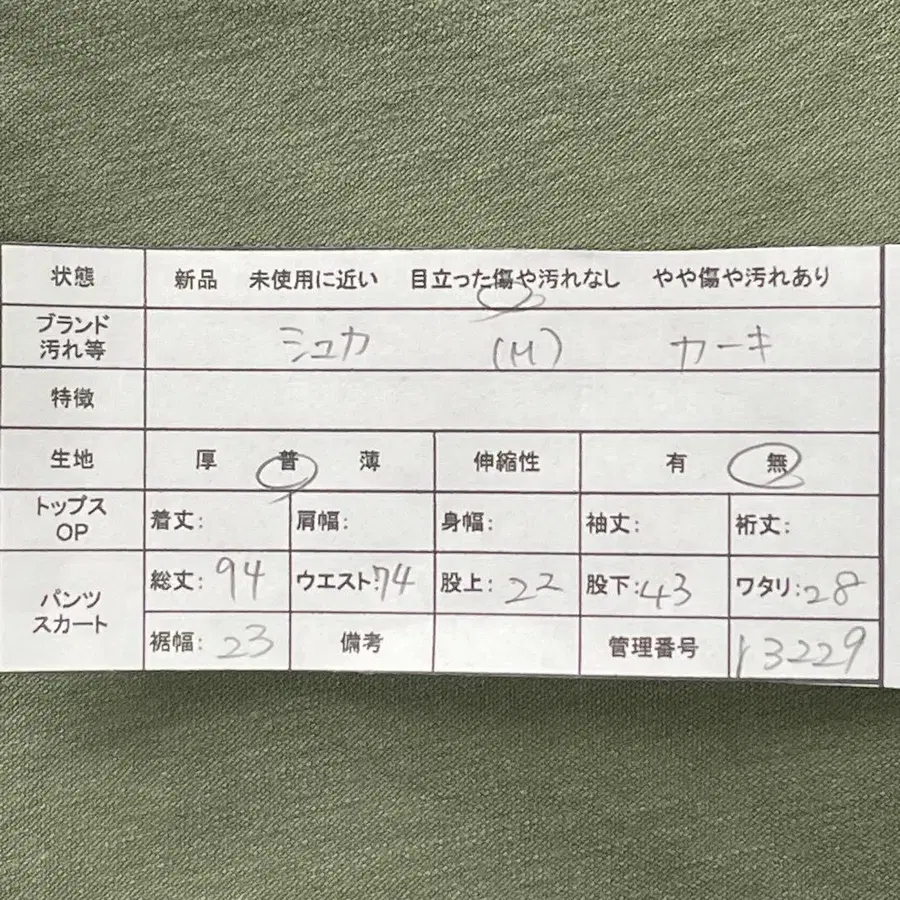 状態 新品 未使用に近い 目立った傷や汚れなし やや傷や汚れあり
ブランド
汚れ等
シュカ (M) カーキ
特徴
生地 厚 普 薄 伸縮性 有 無
トップス
OP
着丈: 肩幅: 身幅: 袖丈: 裄丈:
パンツ
スカート
総丈:94 ウエスト:74 股上:22 股下:43 ワタリ:28
裾幅:23 備考 管理番号 13229